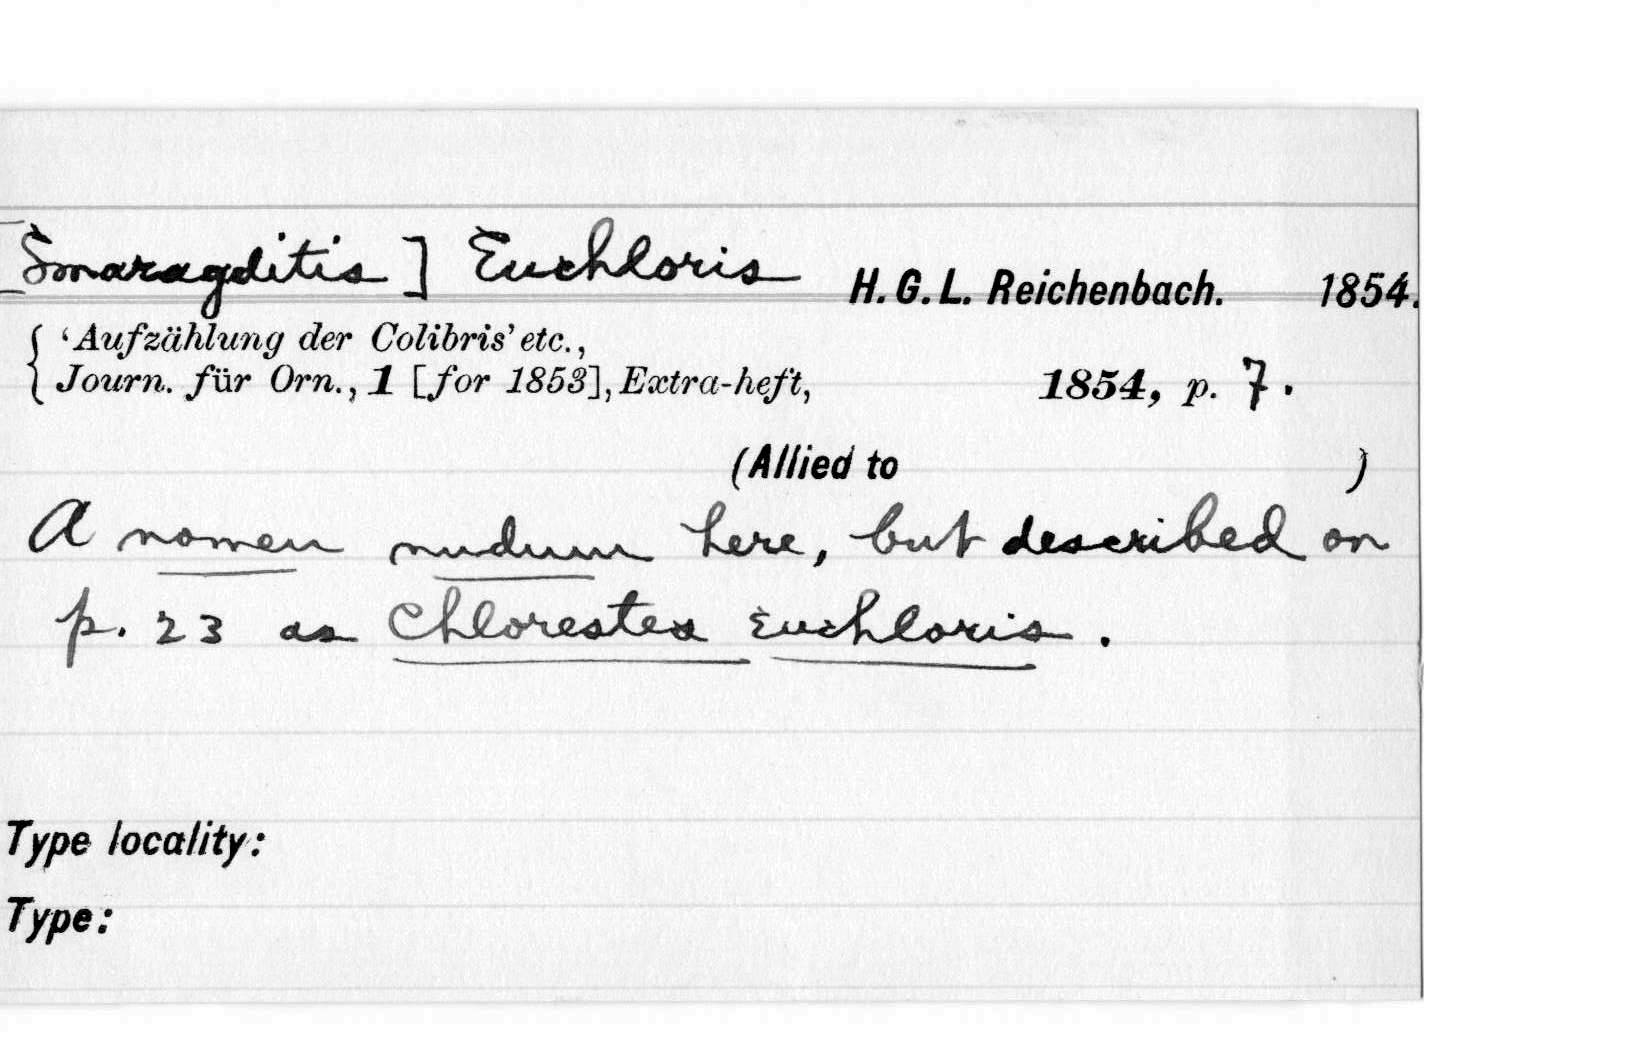 [Smaragditis] Euchloris H. G. L. Reichenbach. 1854.
'Aufzählung der Colibris' etc.,
Journ. für Orn., 1 [for 1853], Extra-heft, 1854, p. 7.
(Allied to )
A nomen nudum here, but described on
p. 23 as Chlorestes Euchloris.
Type locality:
Type: